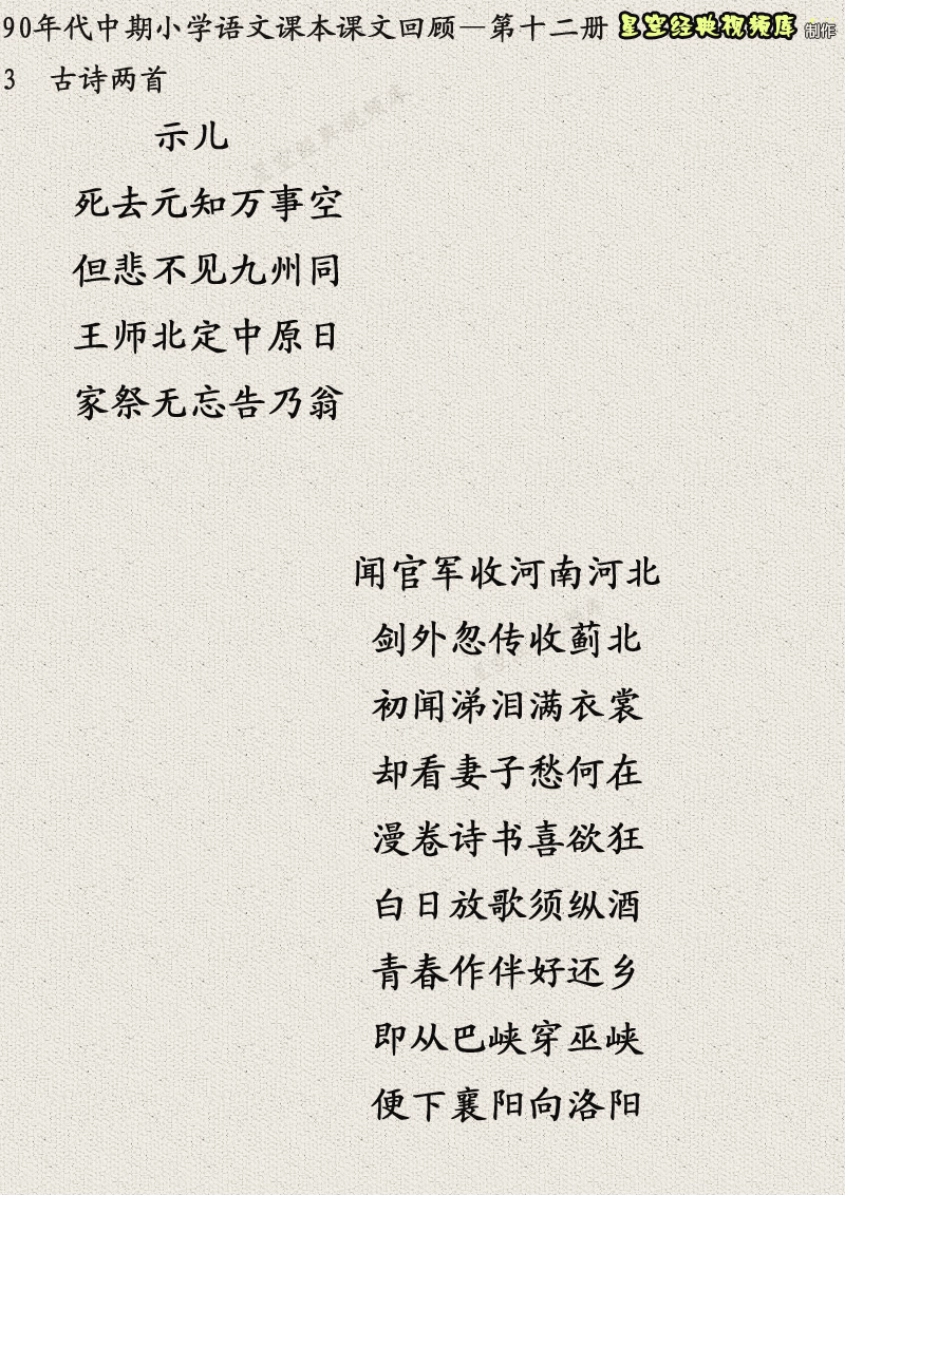 90年代中期小学语文课本课文回顾—第十二册 星空经典视频库 制作
3 古诗两首
示儿
死去元知万事空
但悲不见九州同
王师北定中原日
家祭无忘告乃翁
闻官军收河南河北
剑外忽传收蓟北
初闻涕泪满衣裳
却看妻子愁何在
漫卷诗书喜欲狂
白日放歌须纵酒
青春作伴好还乡
即从巴峡穿巫峡
便下襄阳向洛阳